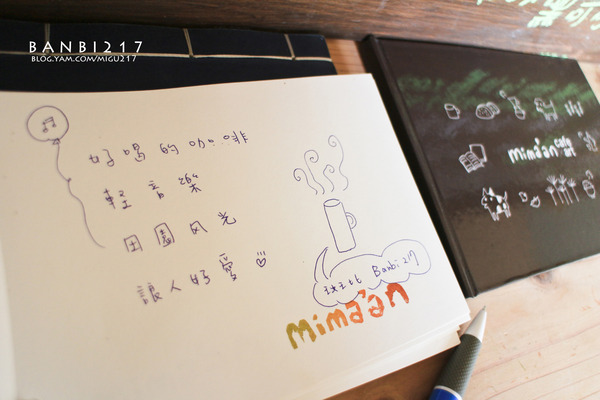 BANBI217
BLOG.YAM.COM/MIGU217
好喝的咖啡
輕音樂
田園風光
讓人好愛
Banbi 217
mima'an
mima'an cafe